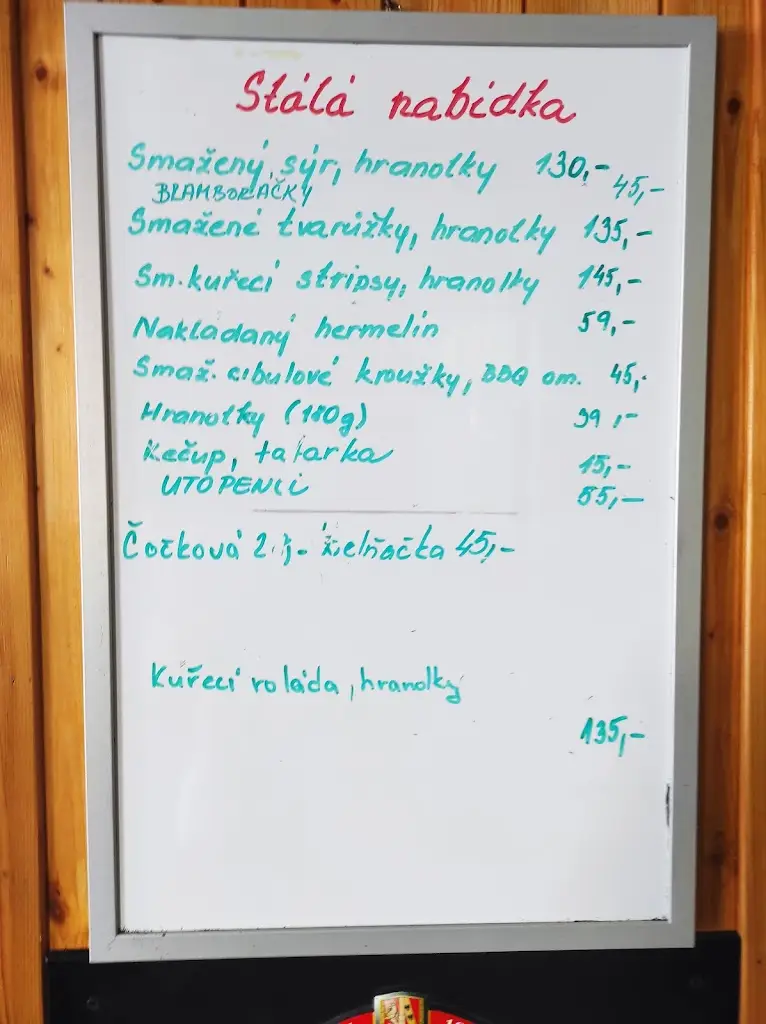 Stálá nabídka
Smažený sýr, hranolky 130,-
BRAMBORAČKY 45,-
Smažené tvarůžky, hranolky 135,-
Sm. kuřecí stripsy, hranolky 145,-
Nakládaný hermelín 59,-
Smaž. cibulové kroužky, BBQ om. 45,-
Hranolky (180g) 39,-
Kečup, tatarka 15,-
UTOPENCI 55,-
Čočková 2.j- Zelňačka 45,-
Kuřecí roláda, hranolky
135,-